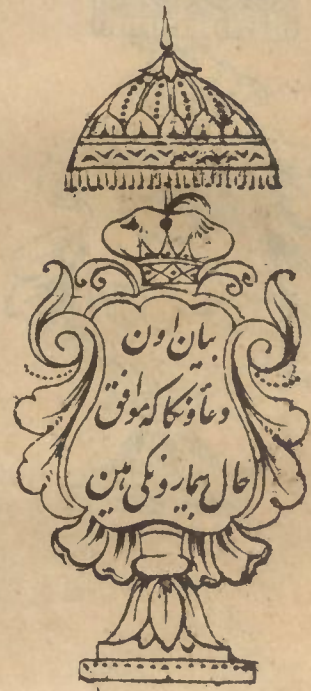 بیان اون
دعاؤنکا که موافق
حال بیمارونکی هین